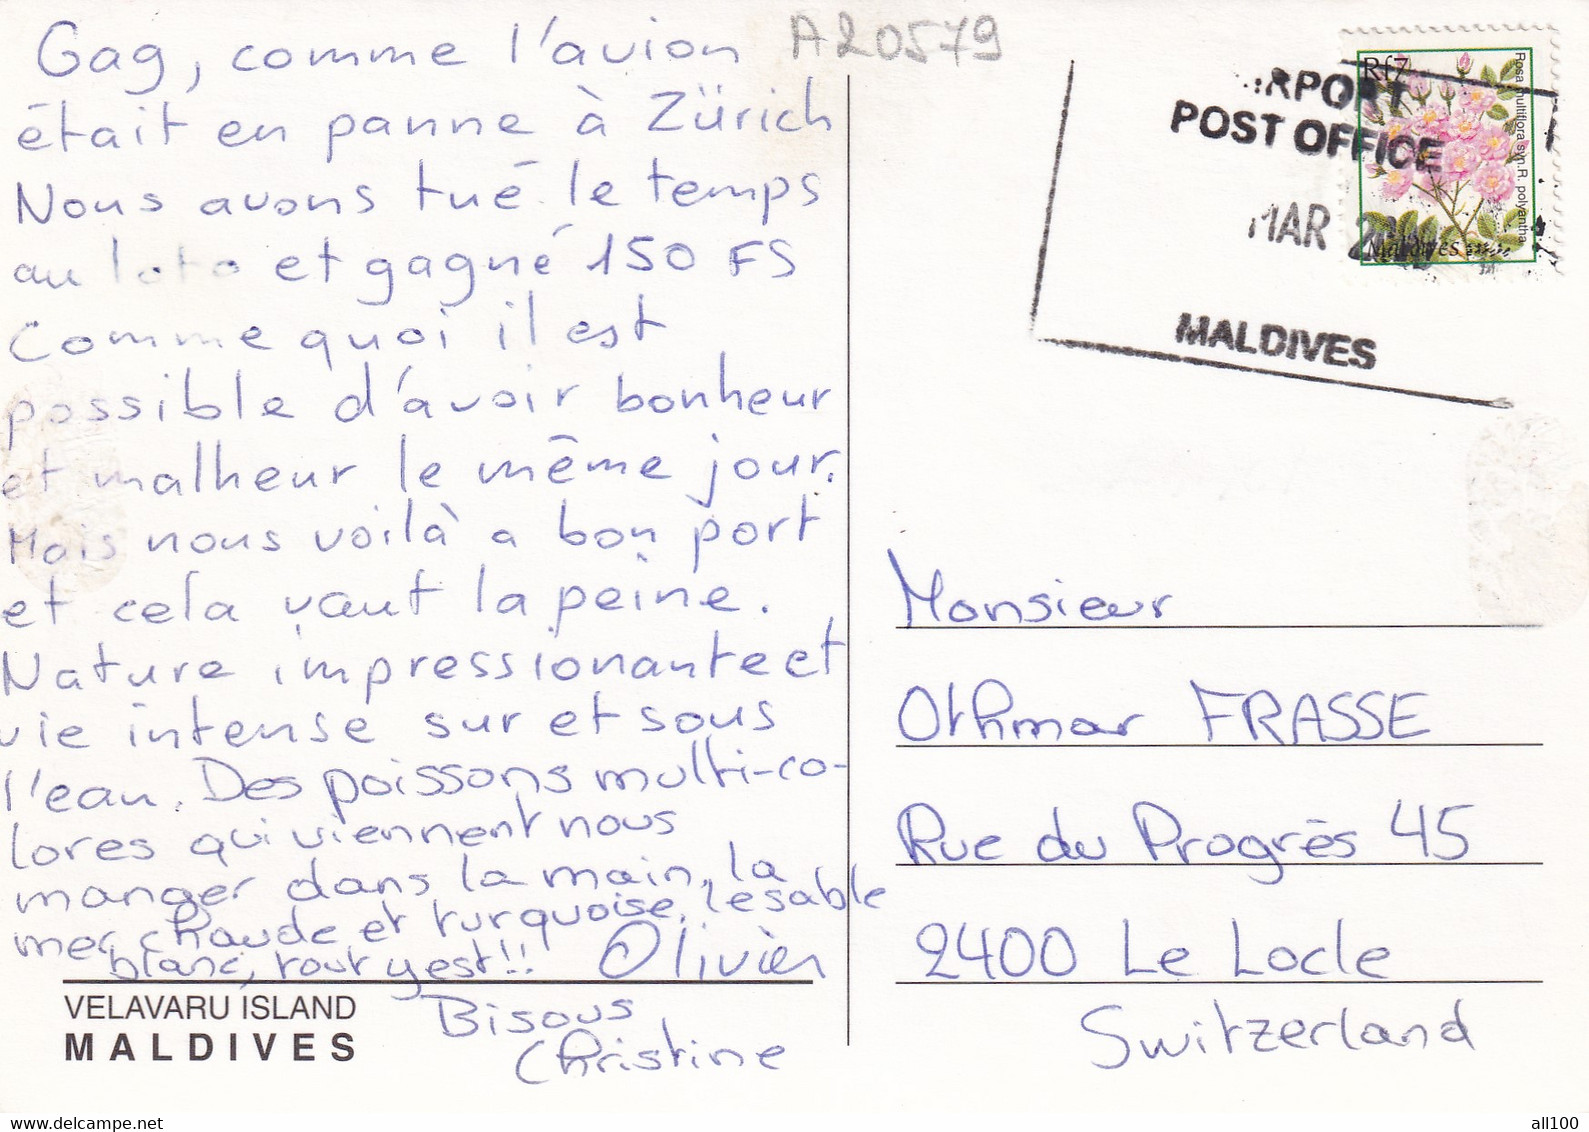 Gag, comme l'avion
était en panne à Zürich
Nous avons tué le temps
au loto et gagné 150 FS
Comme quoi il est
possible d'avoir bonheur
et malheur le même jour.
Mais nous voilà a bon port
et cela vaut la peine.
Nature impressionante et
vie intense sur et sous
l'eau. Des poissons multi-co-
lores qui viennent nous
manger dans la main, la
mer chaude et turquoise, le sable
blanc, tout y est!! Olivier
Bisous
Christine
VELAVARU ISLAND
MALDIVES
A20579
RPORT
POST OFFICE
MAR
MALDIVES
Rf7
Rosa multiflora syn. R. polyantha
Maldives
Monsieur
Othmar FRASSE
Rue du Progrès 45
2400 Le Locle
Switzerland
all100